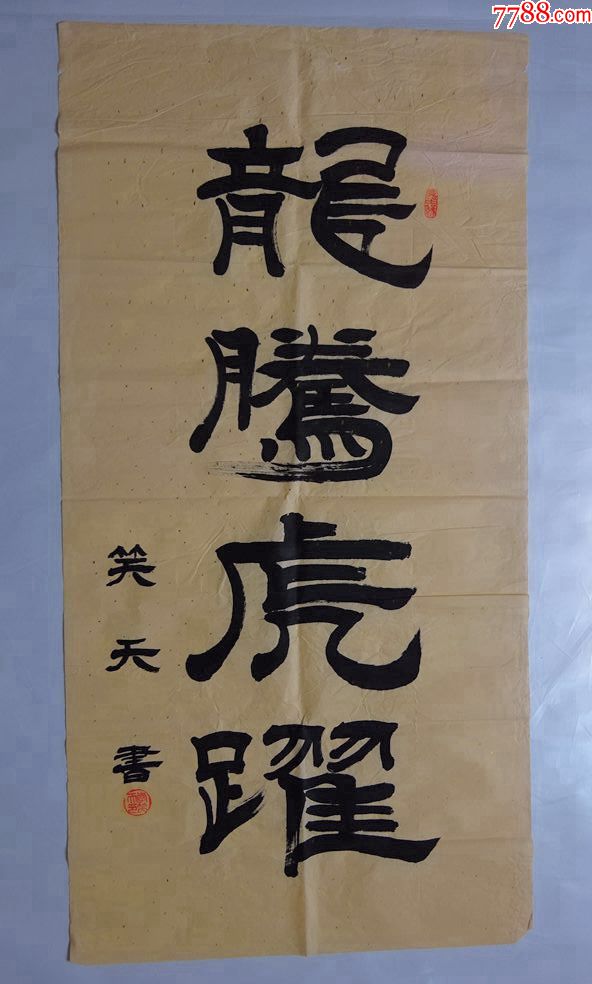 7788.com
龍騰虎躍
笑天書